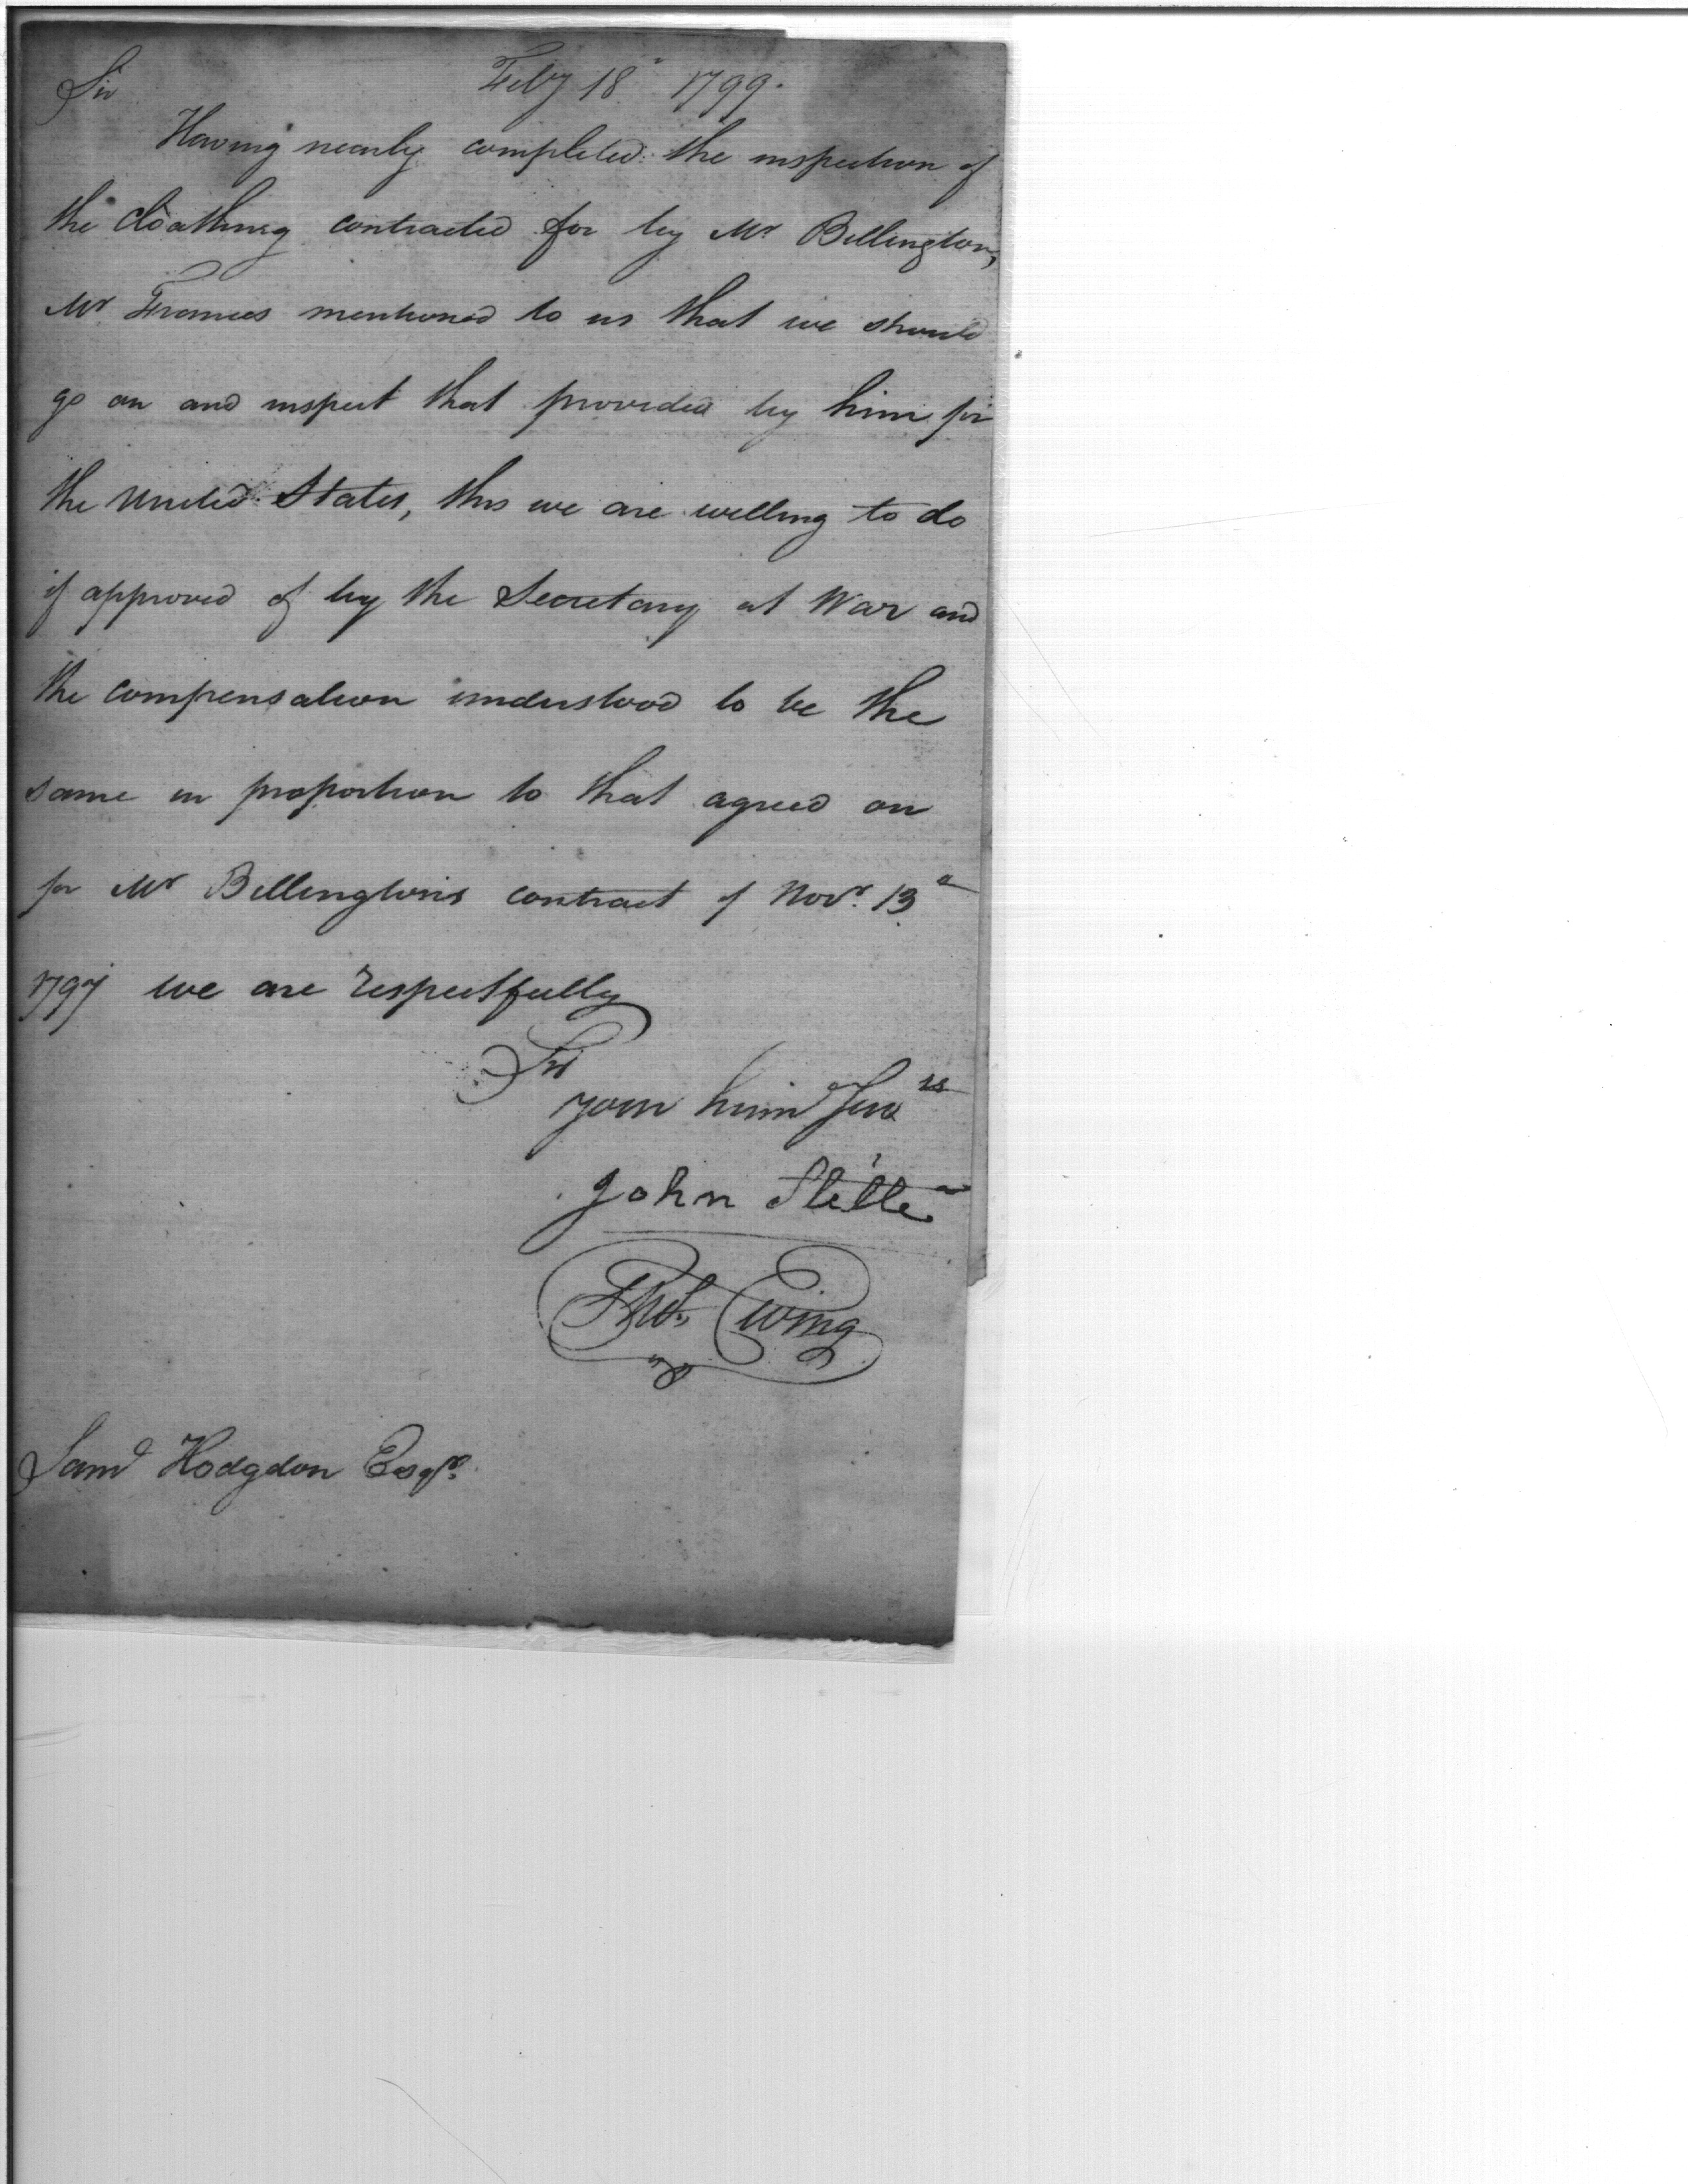 Sir Feby 18th 1799.
Having nearly completed the inspection of
the cloathing contracted for by Mr Billington,
Mr Frances mentioned to us that we should
go on and inspect that provided by him for
the United States, this we are willing to do
if approved of by the Secretary at War and
the compensation understood to be the
same in proportion to that agreed on
for Mr Billington's contract of Novr. 13th
1797 we are respectfully
Sir
your hum Servts
John Stillé
Thos. Ewing
Saml Hodgdon Esqr.